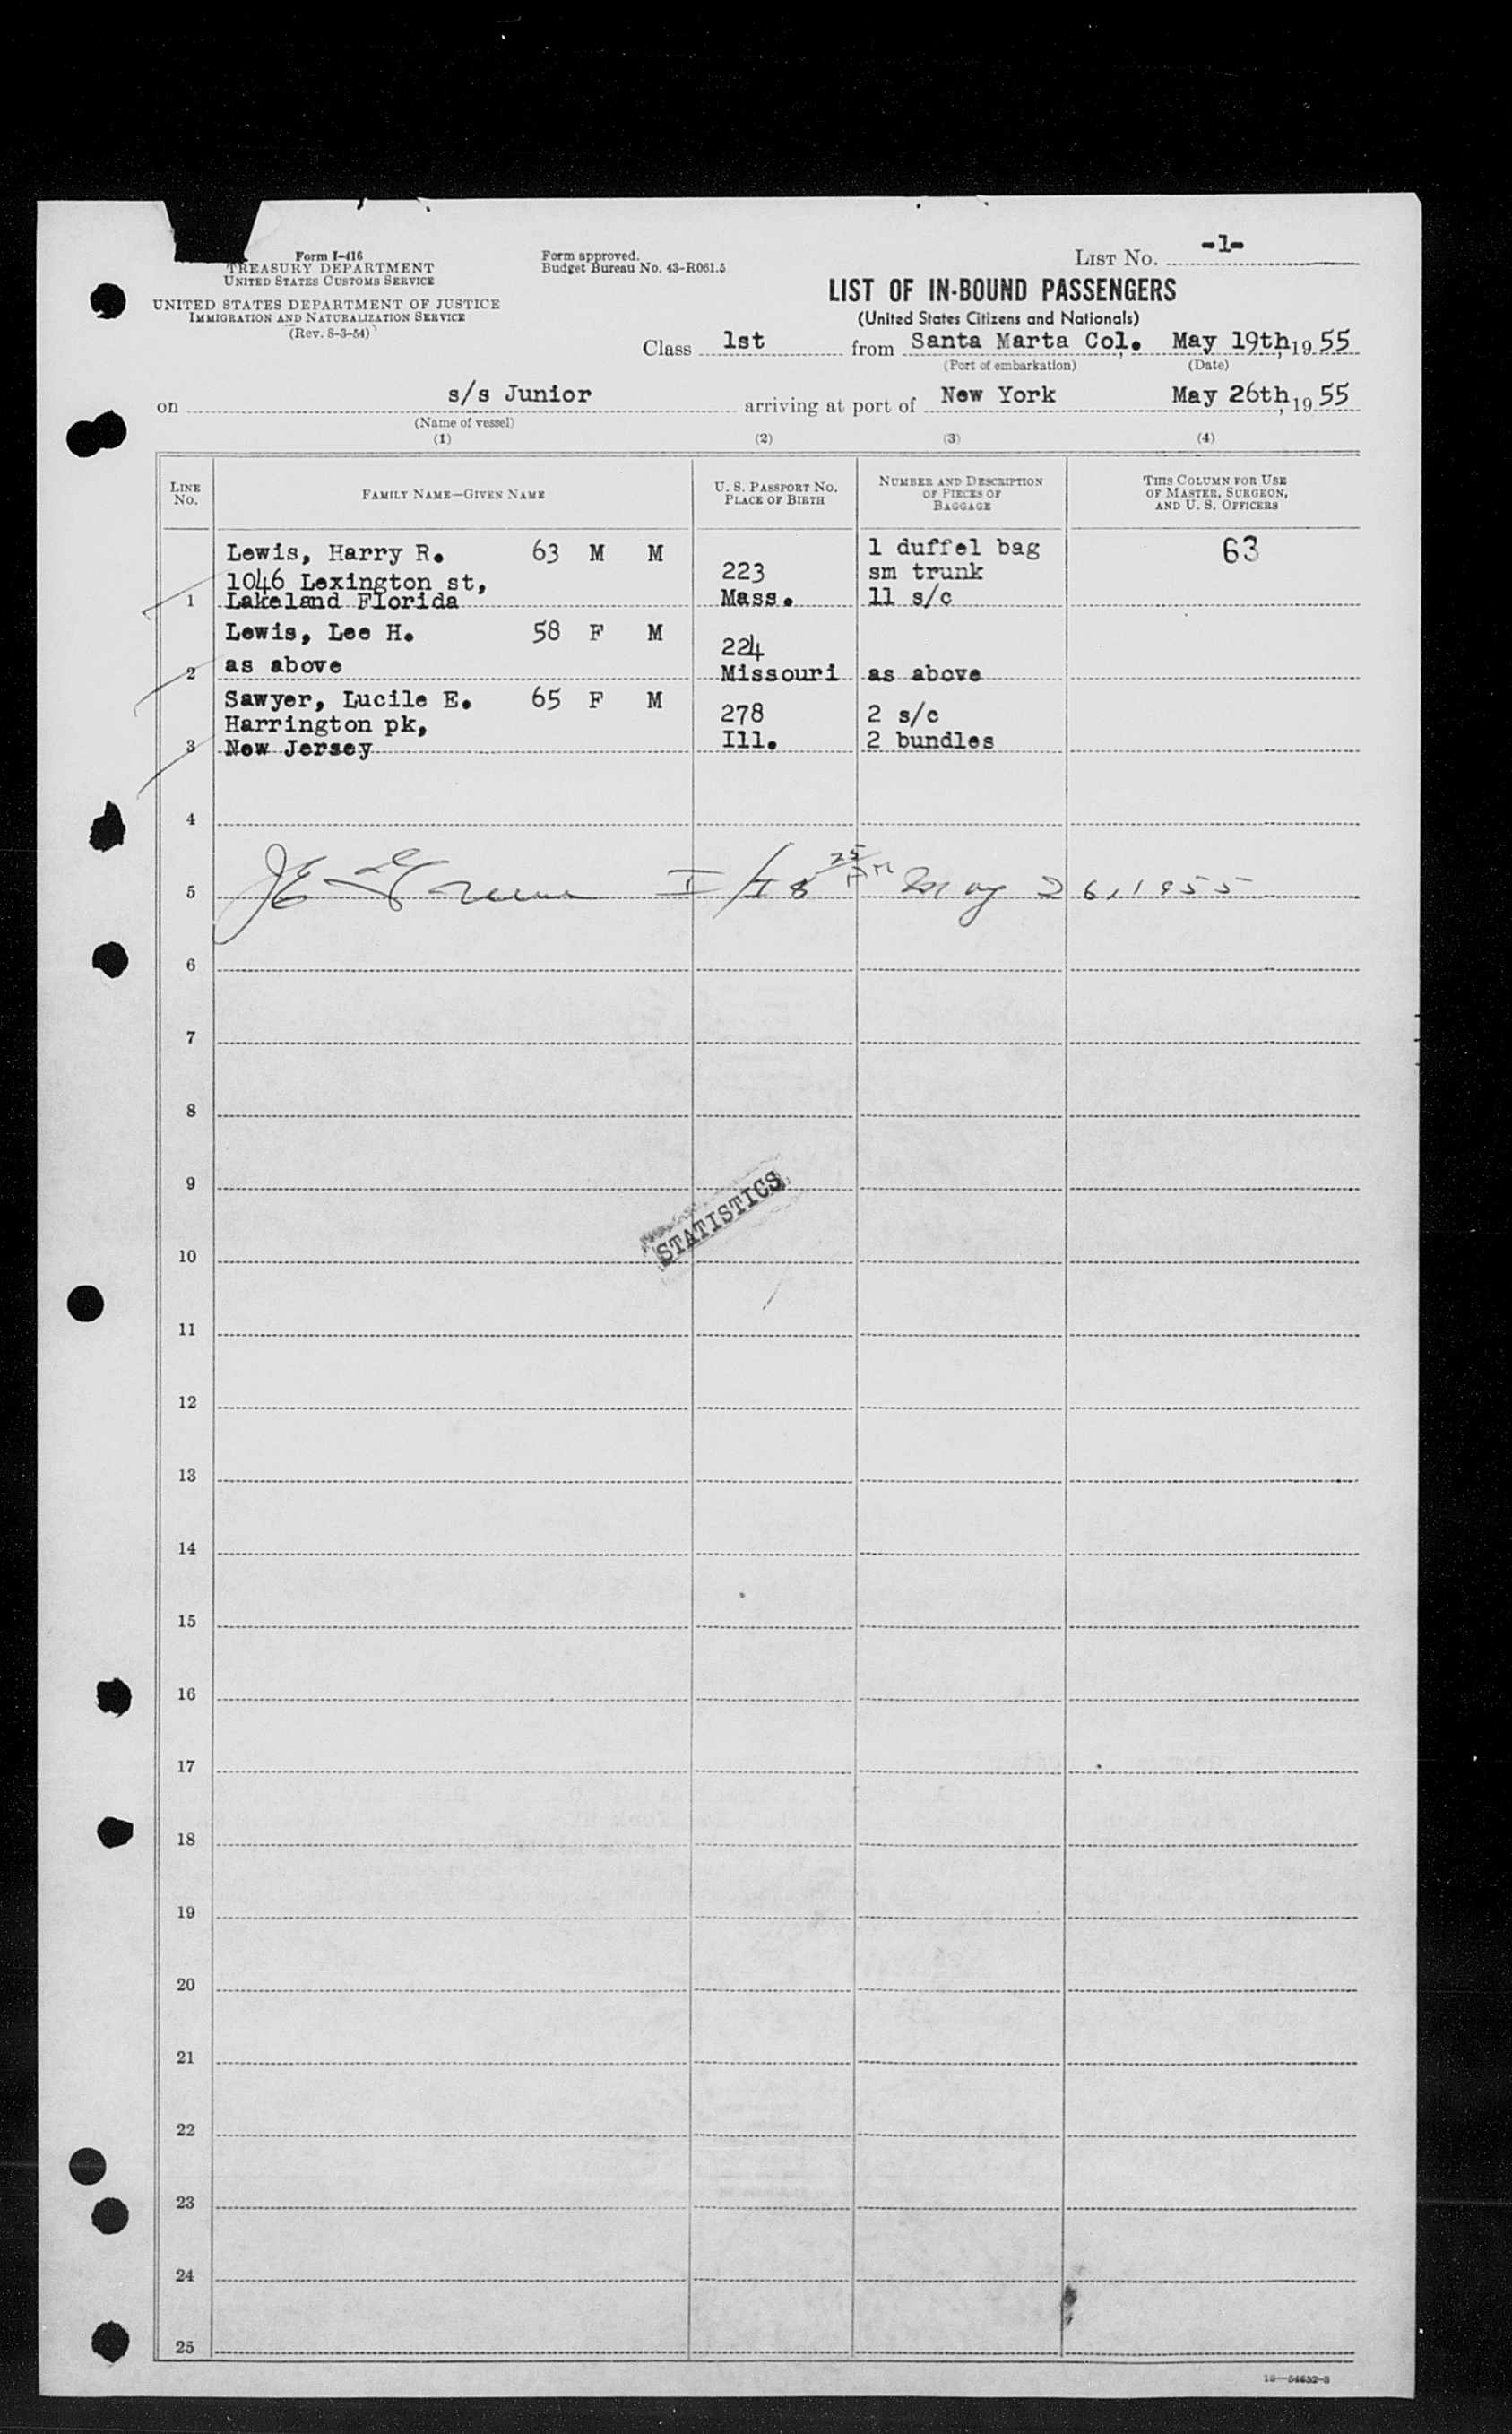 Form I-416
TREASURY DEPARTMENT
UNITED STATES CUSTOMS SERVICE
UNITED STATES DEPARTMENT OF JUSTICE
IMMIGRATION AND NATURALIZATION SERVICE
(Rev. 8-3-54)
Form approved.
Budget Bureau No. 43-R061.5
LIST NO. -1-
LIST OF IN-BOUND PASSENGERS
(United States Citizens and Nationals)
Class 1st from Santa Marta Col. May 19th, 19 55
(Port of embarkation) (Date)
on s/s Junior arriving at port of New York May 26th, 19 55
(Name of vessel)
(1) (2) (3) (4)
LINE NO. FAMILY NAME—GIVEN NAME U. S. PASSPORT NO. PLACE OF BIRTH NUMBER AND DESCRIPTION OF PIECES OF BAGGAGE THIS COLUMN FOR USE OF MASTER, SURGEON, AND U. S. OFFICERS
Lewis, Harry R. 63 M M 1 duffel bag 63
1046 Lexington st, 223 sm trunk
1 Lakeland Florida Mass. 11 s/c
Lewis, Lee H. 58 F M 224
2 as above Missouri as above
Sawyer, Lucile E. 65 F M
Harrington pk, 278 2 s/c
3 New Jersey Ill. 2 bundles
4
5 May 26, 1955
6
7
8
9
STATISTICS
10
11
12
13
14
15
16
17
18
19
20
21
22
23
24
25
16—54652-3